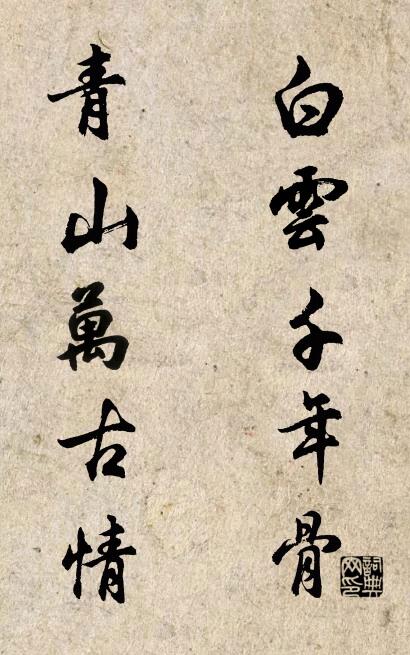 白雲千年骨
青山萬古情
詞典網印